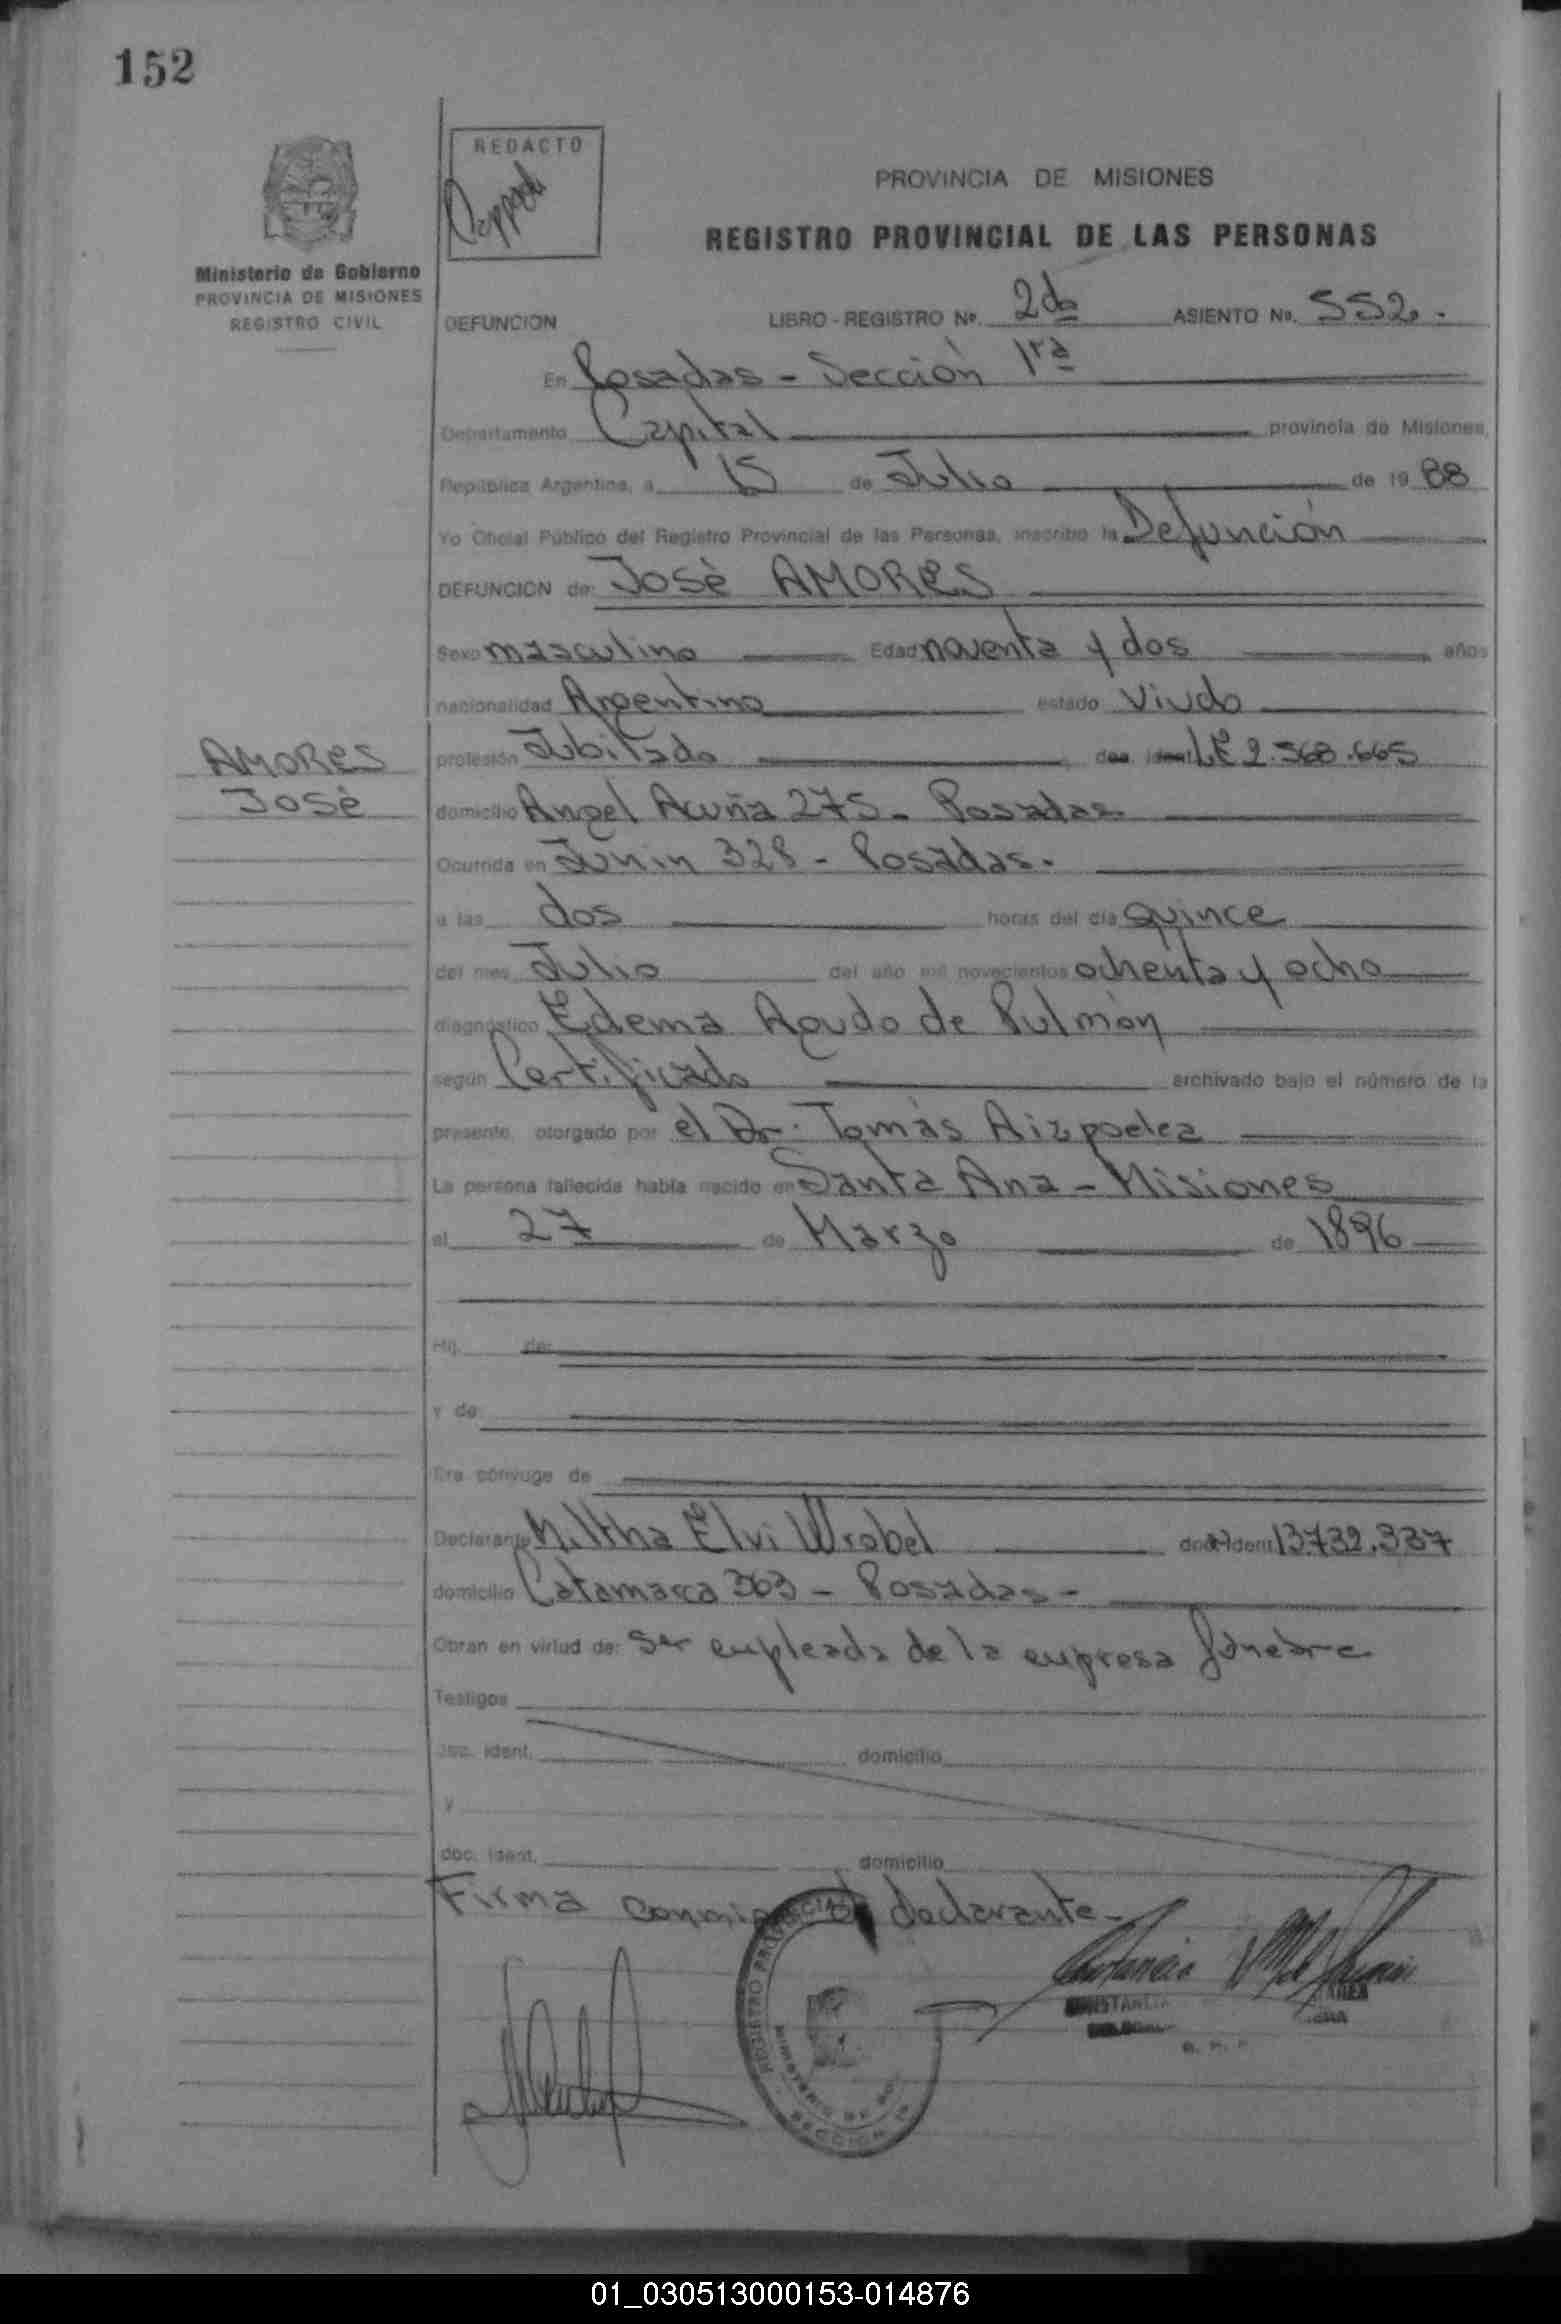 152
REDACTO
PROVINCIA DE MISIONES
REGISTRO PROVINCIAL DE LAS PERSONAS
Ministerio de Gobierno
PROVINCIA DE MISIONES
REGISTRO CIVIL
DEFUNCION LIBRO - REGISTRO No. 2do ASIENTO No. 552.
En Posadas - Sección 1ra
Departamento Capital provincia de Misiones,
República Argentina, a 15 de Julio de 19 88
Yo Oficial Público del Registro Provincial de las Personas, inscribo la Defunción
DEFUNCION de: José AMORES
Sexo masculino Edad noventa y dos años
nacionalidad Argentina estado Viudo
AMORES
José
profesión Jubilado doc. ident LE 2.568.665
domicilio Angel Acuña 275 - Posadas
Ocurrida en Junin 328 - Posadas.
a las dos horas del día quince
del mes Julio del año mil novecientos ochenta y ocho
diagnóstico Edema Agudo de Pulmón
según Certificado archivado bajo el número de la
presente, otorgado por el Dr. Tomás
La persona fallecida había nacido en Santa Ana - Misiones
el 27 de Marzo de 1896
Hij. de:
y de:
Era cónyuge de
Declarante Miltha Elvi Wrobel doc. ident 13.732.337
domicilio Catamarca 363 - Posadas -
Obran en virtud de: ser empleada de la empresa fúnebre
Testigos
doc. ident. domicilio
y
doc. ident. domicilio
Firma conmigo declarante -
REGISTRO PROVINCIAL
MINISTERIO DE
SECCION 1a
01_030513000153-014876